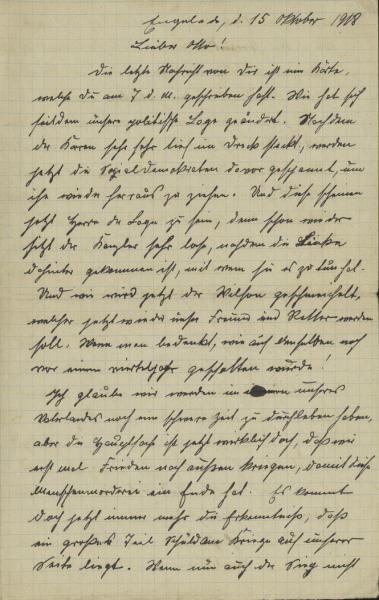 Engelade, d. 15 Oktober 1918
Lieber Otto!
Die letzte Nachricht von Dir ist eine Karte,
welche Du am 7 d. M. geschrieben hast. Wie hat sich
seitdem unsere politische Lage geändert. Nachdem
der Karren sehr sehr tief im Dreck steckt, werden
jetzt die Sozialdemokraten davor gespannt, um
ihn wieder herraus zu ziehen. Und diese scheinen
jetzt Herr der Lage zu sein, denn schon wieder
sitzt der Kanzler sehr lose, nachdem die Linke
dahinter gekommen ist, mit wem sie es zu tun hat.
Und wie wird jetzt der Wilson geschmeichelt,
welcher jetzt wieder unser Freund und Retter werden
soll. Wenn man bedenkt, wie auf denselben noch
vor einem vierteljahr gescholten wurde!
Ich glaube wir werden im innern unseres
Vaterlandes noch eine schwere Zeit zu durchleben haben,
aber die Hauptsache ist jetzt wirklich doch, daß wir
erst mal Frieden nach außen kriegen, damit diese
Menschenmorderei ein Ende hat. Es kommt
doch jetzt immer mehr die Erkenntniß, daß
ein großes Teil Schuld am Kriege auf unserer
Seite liegt. Wenn nun auch der Sieg nicht